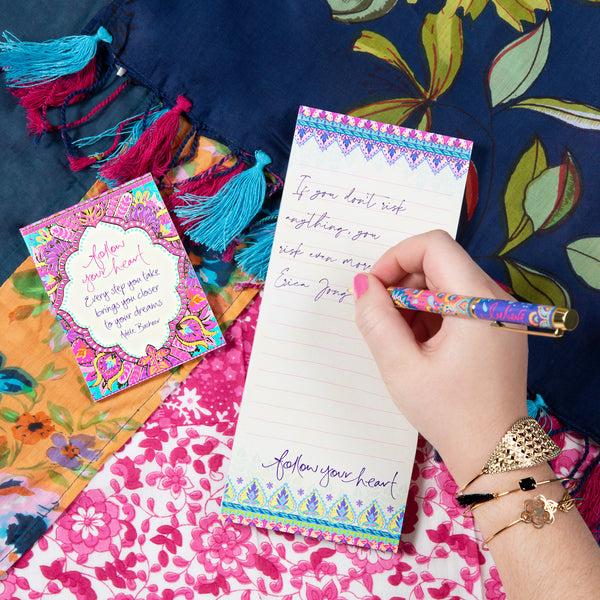 follow
your heart
Every step you take
brings you closer
to your dreams
Adele Basheer
If you don't risk
anything, you
risk even more
Erica Jong
follow your heart